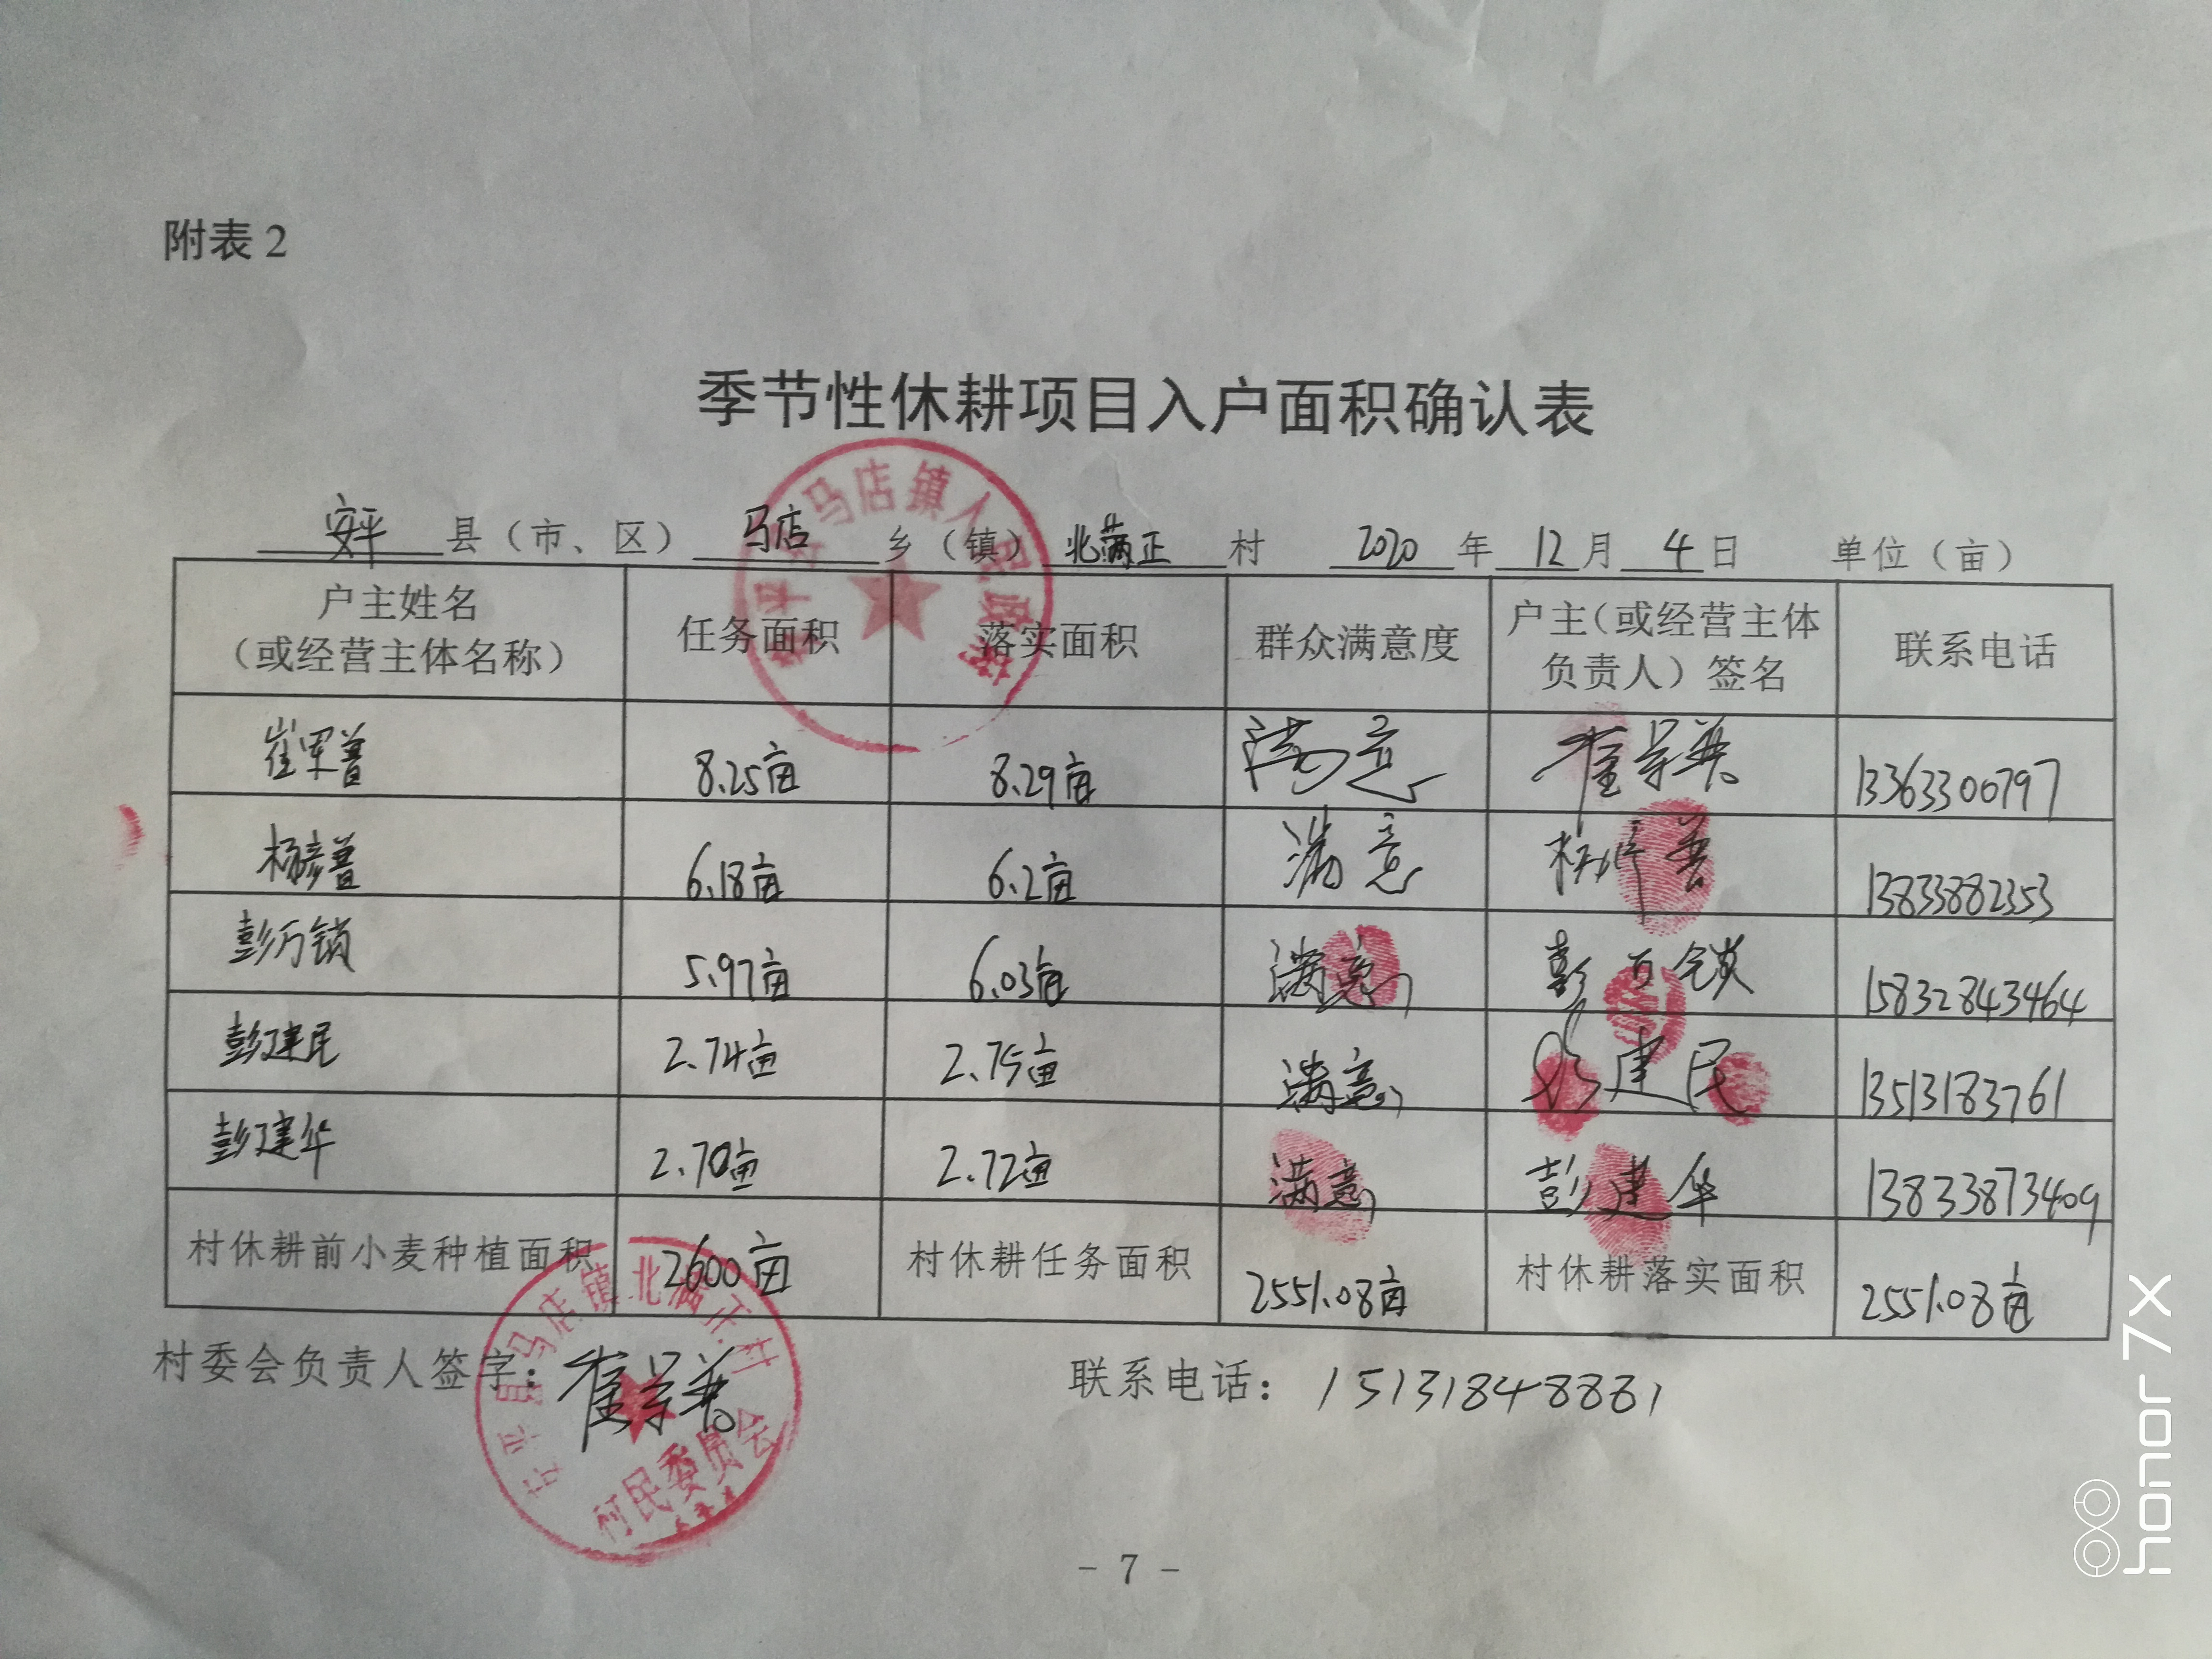 附表2
季节性休耕项目入户面积确认表
安平县（市、区）马店乡（镇）北满正村 2020年12月4日 单位（亩）
户主姓名（或经营主体名称） 任务面积 落实面积 群众满意度 户主（或经营主体负责人）签名 联系电话
崔军普 8.25亩 8.29亩 满意 13363300797
杨彦普 6.18亩 6.2亩 满意 13833882353
彭万锁 5.97亩 6.03亩 满意 彭万锁 15832843464
彭建民 2.74亩 2.75亩 满意 彭建民 13513183761
彭建华 2.70亩 2.72亩 满意 彭建华 13833873409
村休耕前小麦种植面积 2600亩 村休耕任务面积 2551.08亩 村休耕落实面积 2551.08亩
村委会负责人签字： 联系电话：15131848881
安平县马店镇人民政府
安平县马店镇北满正村
村民委员会
- 7 -
honor 7X